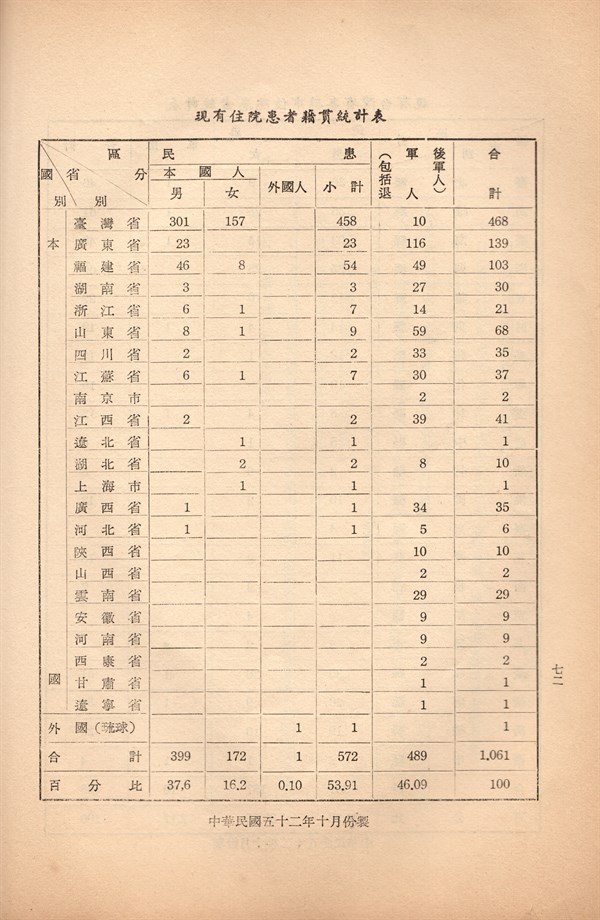 現有住院患者籍貫統計表
區分 民患 軍人(包括退後軍人) 合計
國別 省別 本國人 外國人 小計
男 女
本國
臺灣省 301 157 458 10 468
廣東省 23 23 116 139
福建省 46 8 54 49 103
湖南省 3 3 27 30
浙江省 6 1 7 14 21
山東省 8 1 9 59 68
四川省 2 2 33 35
江蘇省 6 1 7 30 37
南京市 2 2
江西省 2 2 39 41
遼北省 1 1 1
湖北省 2 2 8 10
上海市 1 1 1
廣西省 1 1 34 35
河北省 1 1 5 6
陝西省 10 10
山西省 2 2
雲南省 29 29
安徽省 9 9
河南省 9 9
西康省 2 2
甘肅省 1 1
遼寧省 1 1
外國(琉球) 1 1 1
合計 399 172 1 572 489 1.061
百分比 37.6 16.2 0.10 53.91 46.09 100
中華民國五十二年十月份製
七二